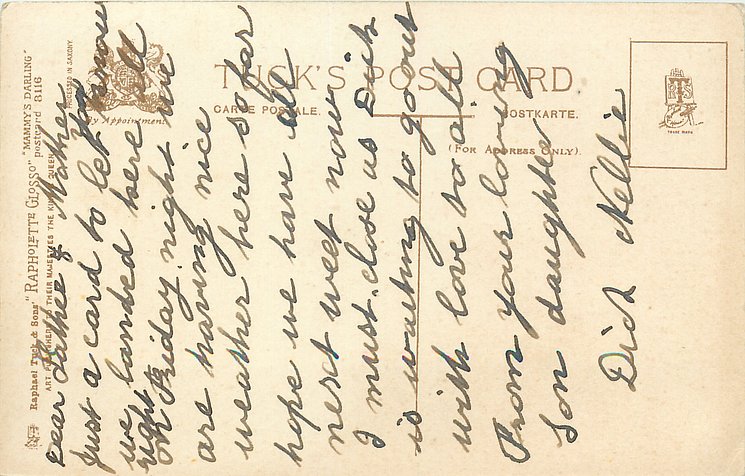 TUCK'S POST CARD
CARTE POSTALE. POSTKARTE.
(FOR ADDRESS ONLY).
By Appointment
TRADE MARK
Raphael Tuck & Sons' "RAPHOLETTE GLOSSO" "MAMMY'S DARLING"
postcard 8116
ART PUBLISHERS TO THEIR MAJESTIES THE KING & QUEEN
PROCESSED IN SAXONY
Dear Father & Mother
Just a card to let you know
we landed here all
right
on Friday night we
are having nice
weather here so far
hope we have all
next week now
I must close as Dick
is waiting to go out
with love to all
From your loving
son daughter
Dick Nellie